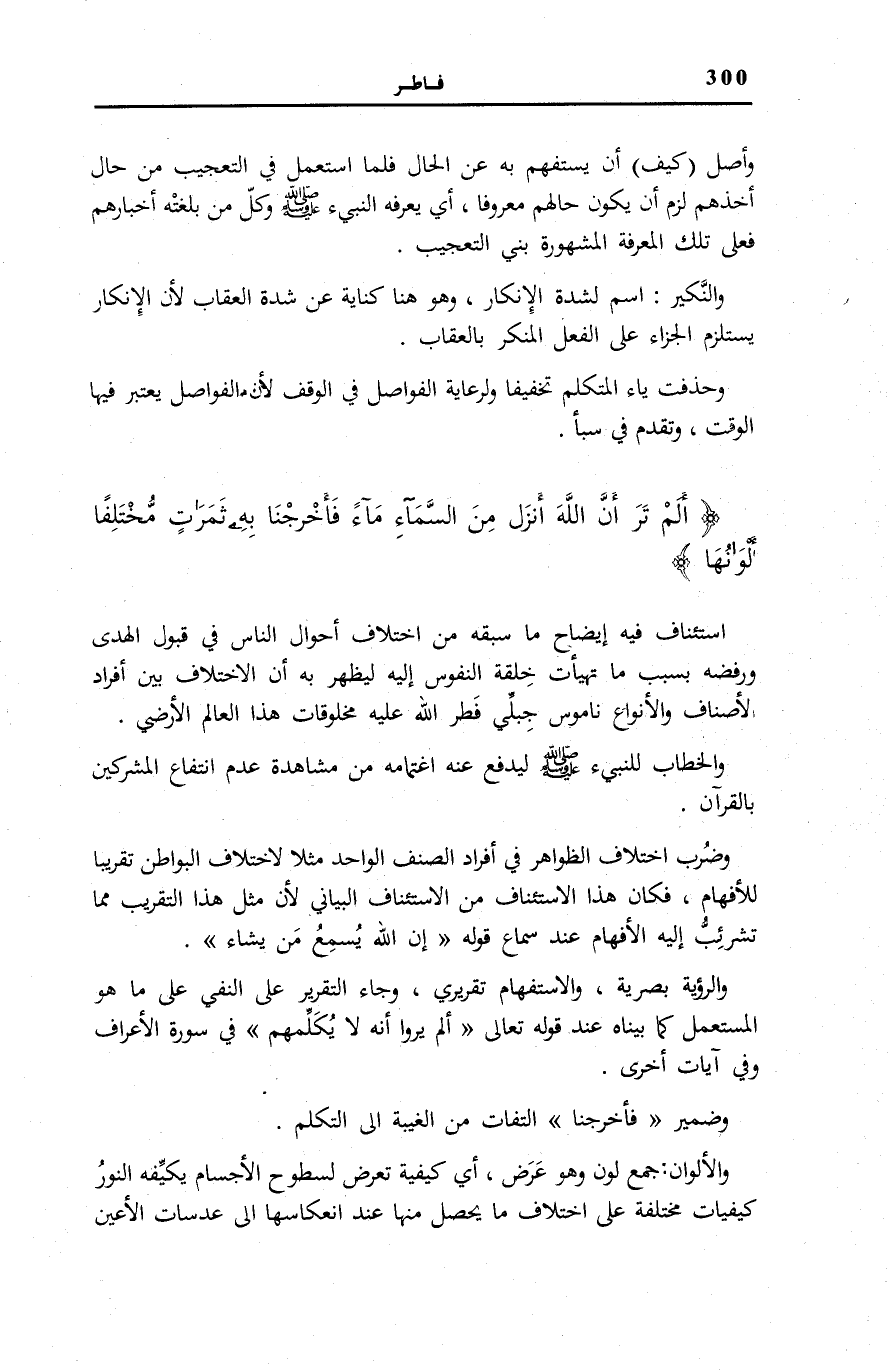 300
فـاطـر
وأصل (كيف) أن يستفهم به عن الحال فلما استعمل في التعجيب من حال
أخذهم لزم أن يكون حالهم معروفا ، أي يعرفه النبيء ﷺ وكلّ من بلغتْه أخبارهم
فعلى تلك المعرفة المشهورة بني التعجيب .
والنَّكير : اسم لشدة الإنكار ، وهو هنا كناية عن شدة العقاب لأن الإنكار
يستلزم الجزاء على الفعل المنكر بالعقاب .
وحذفت ياء المتكلم تخفيفا ولرعاية الفواصل في الوقف لأن الفواصل يعتبر فيها
الوقت ، وتقدم في سبأ .
﴿ أَلَمْ تَرَ أَنَّ اللَّهَ أَنزَل مِنَ السَّمَآءِ مَآءً فَأَخْرجْنَا بِهِۦ ثَمَرَٰتٍ مُّخْتَلِفًا
أَلْوَٰنُهَا ﴾
استئناف فيه إيضاح ما سبقه من اختلاف أحوال الناس في قبول الهدى
ورفضه بسبب ما تهيأت خِلقة النفوس إليه ليظهر به أن الاختلاف بين أفراد
الأصناف والأنواع ناموس جِبلِّي فَطر الله عليه مخلوقات هذا العالم الأرضي .
والخطاب للنبيء ﷺ ليدفع عنه اغتمامه من مشاهدة عدم انتفاع المشركين
بالقرآن .
وضُرب اختلاف الظواهر في أفراد الصنف الواحد مثلا لاختلاف البواطن تقريبا
للأفهام ، فكان هذا الاستئناف من الاستئناف البياني لأن مثل هذا التقريب مما
تشرئِبُّ إليه الأفهام عند سماع قوله « إن الله يُسمِعُ مَن يشاء » .
والرؤية بصرية ، والاستفهام تقريري ، وجاء التقرير على النفي على ما هو
المستعمل كما بيناه عند قوله تعالى « ألم يروا أنه لا يُكَلِّمهم » في سورة الأعراف
وفي آيات أخرى .
وضمير « فأخرجنا » التفات من الغيبة الى التكلم .
والألوان:جمع لون وهو عَرَض ، أي كيفية تعرض لسطوح الأجسام يكيِّفه النورُ
كيفيات مختلفة على اختلاف ما يحصل منها عند انعكاسها الى عدسات الأعين